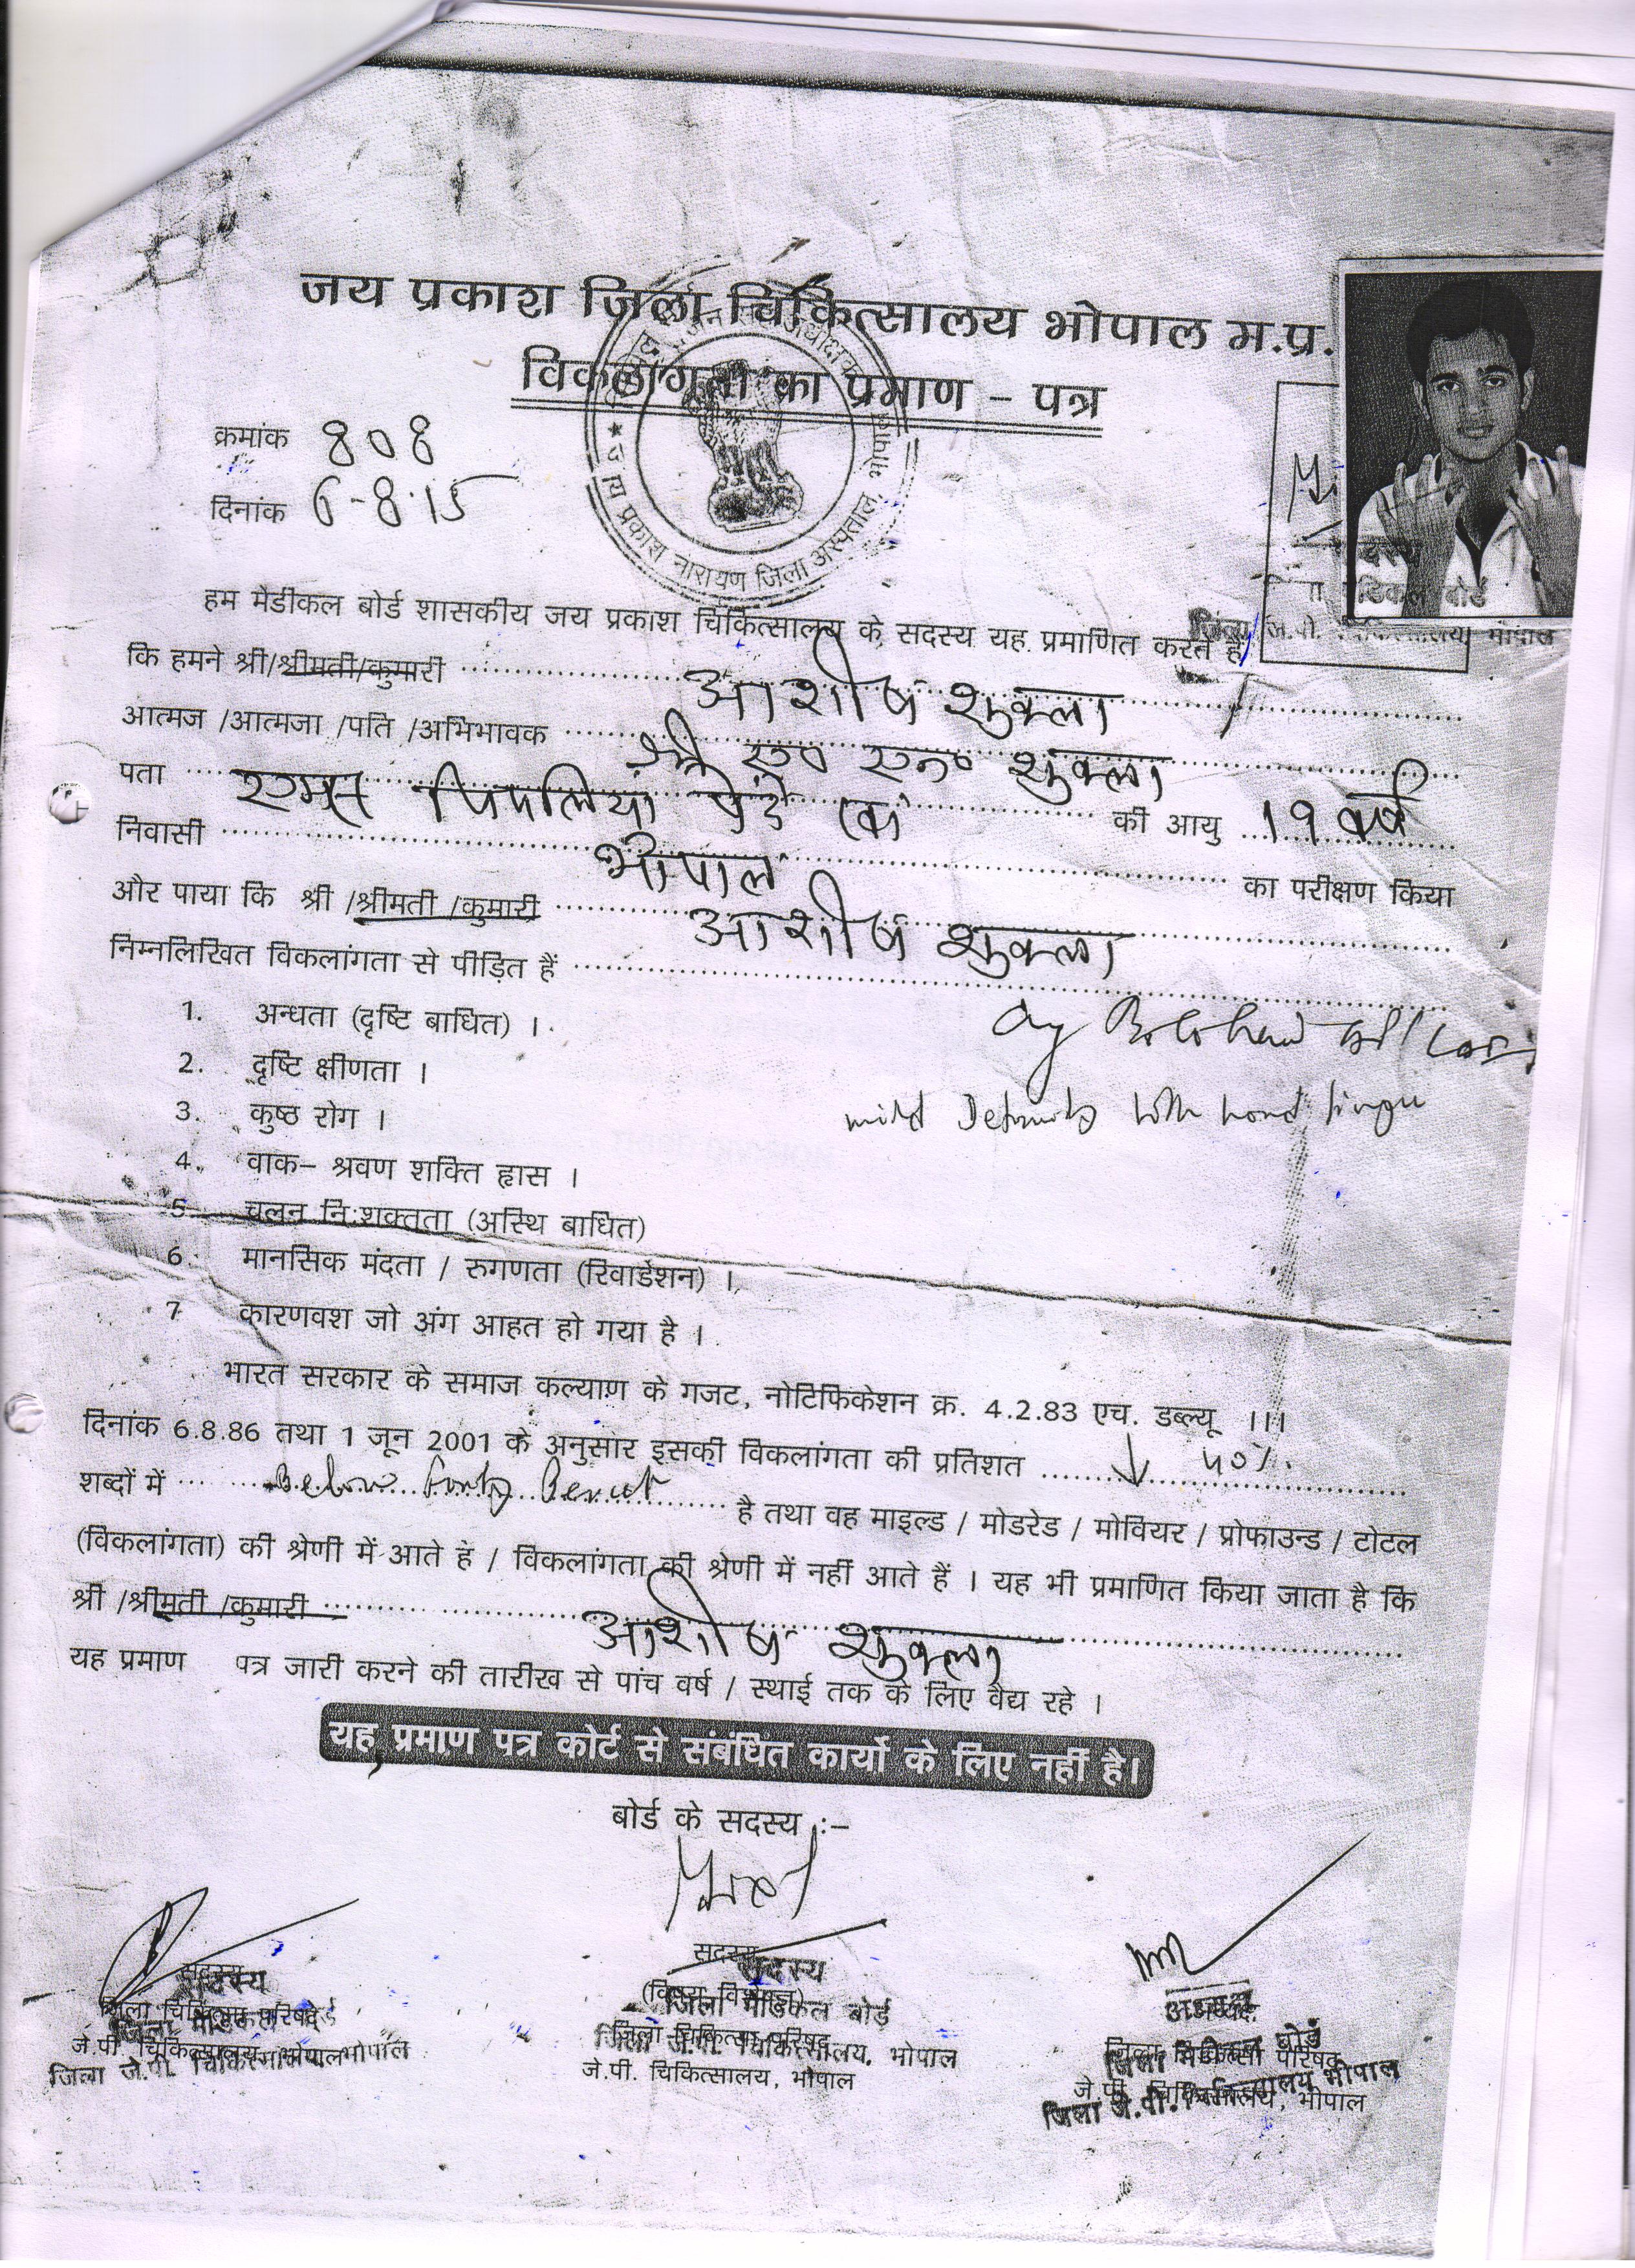 जय प्रकाश जिला चिकित्सालय भोपाल म.प्र.
विकलांगता का प्रमाण – पत्र
क्रमांक 808
दिनांक 6-8-15
प्रकाश नारायण जिला अस्पताल, भोपाल
हम मैडीकल बोर्ड शासकीय जय प्रकाश चिकित्सालय के सदस्य यह प्रमाणित करते हैं
कि हमने श्री/श्रीमती/कुमारी आशीष शुक्ला
आत्मज /आत्मजा /पति /अभिभावक श्री एस० एन० शुक्ला
पता पिपलिया की आयु 19 वर्ष
निवासी भोपाल का परीक्षण किया
और पाया कि श्री /श्रीमती /कुमारी आशीष शुक्ला
निम्नलिखित विकलांगता से पीड़ित हैं
1. अन्धता (दृष्टि बाधित) ।
2. दृष्टि क्षीणता ।
3. कुष्ठ रोग ।
mild hand finger
4. वाक– श्रवण शक्ति ह्रास ।
5 चलन नि:शक्तता (अस्थि बाधित)
6. मानसिक मंदता / रुगणता (रिवार्डेशन) ।
7 कारणवश जो अंग आहत हो गया है ।
भारत सरकार के समाज कल्याण के गजट, नोटिफिकेशन क्र. 4.2.83 एच. डब्ल्यू ।।।
दिनांक 6.8.86 तथा 1 जून 2001 के अनुसार इसकी विकलांगता की प्रतिशत ↓ 40%.
शब्दों में Below Forty है तथा वह माइल्ड / मोडरेड / मोवियर / प्रोफाउन्ड / टोटल
(विकलांगता) की श्रेणी में आते है / विकलांगता की श्रेणी में नहीं आते हैं । यह भी प्रमाणित किया जाता है कि
श्री /श्रीमती /कुमारी आशीष शुक्ला
यह प्रमाण पत्र जारी करने की तारीख से पांच वर्ष / स्थाई तक के लिए वैद्य रहे ।
यह प्रमाण पत्र कोर्ट से संबंधित कार्यो के लिए नहीं है।
बोर्ड के सदस्य :–
सदस्य सदस्य अध्यक्ष
जिला चिकित्सा परिषद जिला चिकित्सा परिषद जिला चिकित्सा परिषद
जे.पी. चिकित्सालय, भोपाल जे.पी. चिकित्सालय, भोपाल जे.पी. चिकित्सालय, भोपाल